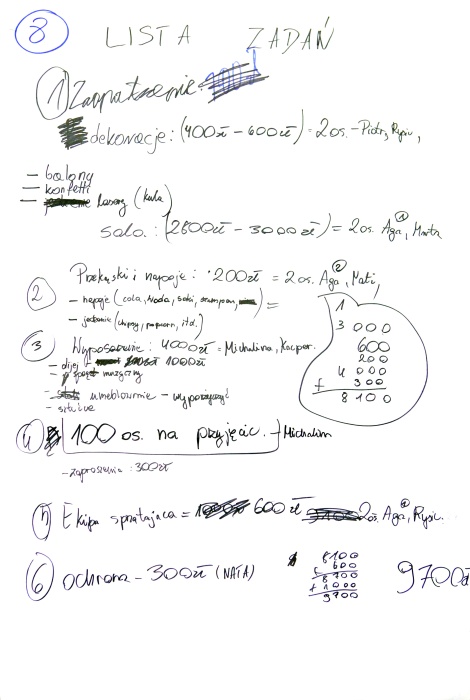 8 LISTA ZADAŃ
1 Zaopatrzenie:
dekoracje: (400zł - 600zł) = 2os. - Piotr, Rysiu,
- balony
- konfetti
- lasery (kula)
sala.: (2800zł - 3000zł) = 2os. Aga ①, Marta
2 Przekąski i napoje: 200zł = 2os. Aga ②, Mati,
- napoje (cola, woda, soki, szampan, ) =
- jedzenie (chipsy, popcorn, itd.)
1
3 000
600
200
4 000
+ 300
8 100
3 Wyposażenie: 4000zł = Michalina, Kacper.
- didżej - 1000zł
- sprzęt muzyczny
- umeblowanie - wypożyczyć
- sztućce
4 100 os. na przyjęcie. - Michalina
- zaproszenia: 300zł
5 Ekipa sprzątająca = 600zł 2os. Aga, Rysiu.
6 ochrona - 300zł (NATA)
8100
600
8700
+ 1000
9700
9700zł